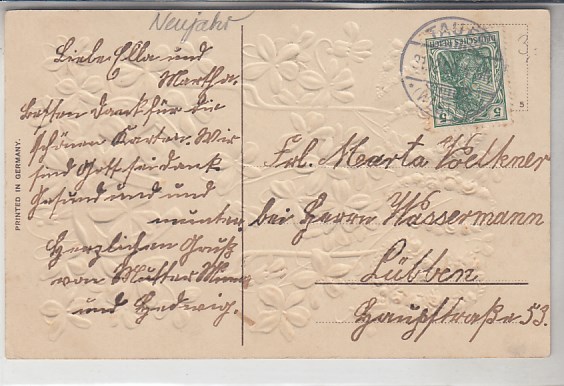 Neujahr
Liebe Ella und
Martha.
Besten Dank für die
schönen Karten. Wir
sind Gott sei dank
Gesund und und
munter.
Herzlichen Gruß
von Mutter
und Hedwig.
PRINTED IN GERMANY.
DEUTSCHES REICH
5
5
3
5
Frl. Marta Voelkner
bei Herrn Wassermann
Lübben
Hauptstraße 53.